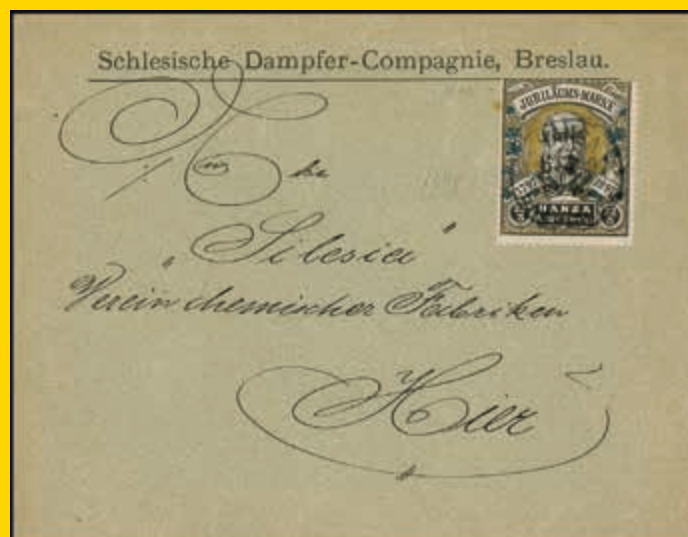 Schlesische Dampfer-Compagnie, Breslau.
JUBILÄUMS-MARKE
HANSA
2 2
An die
„Silesia“
Verein chemischer Fabriken
Hier